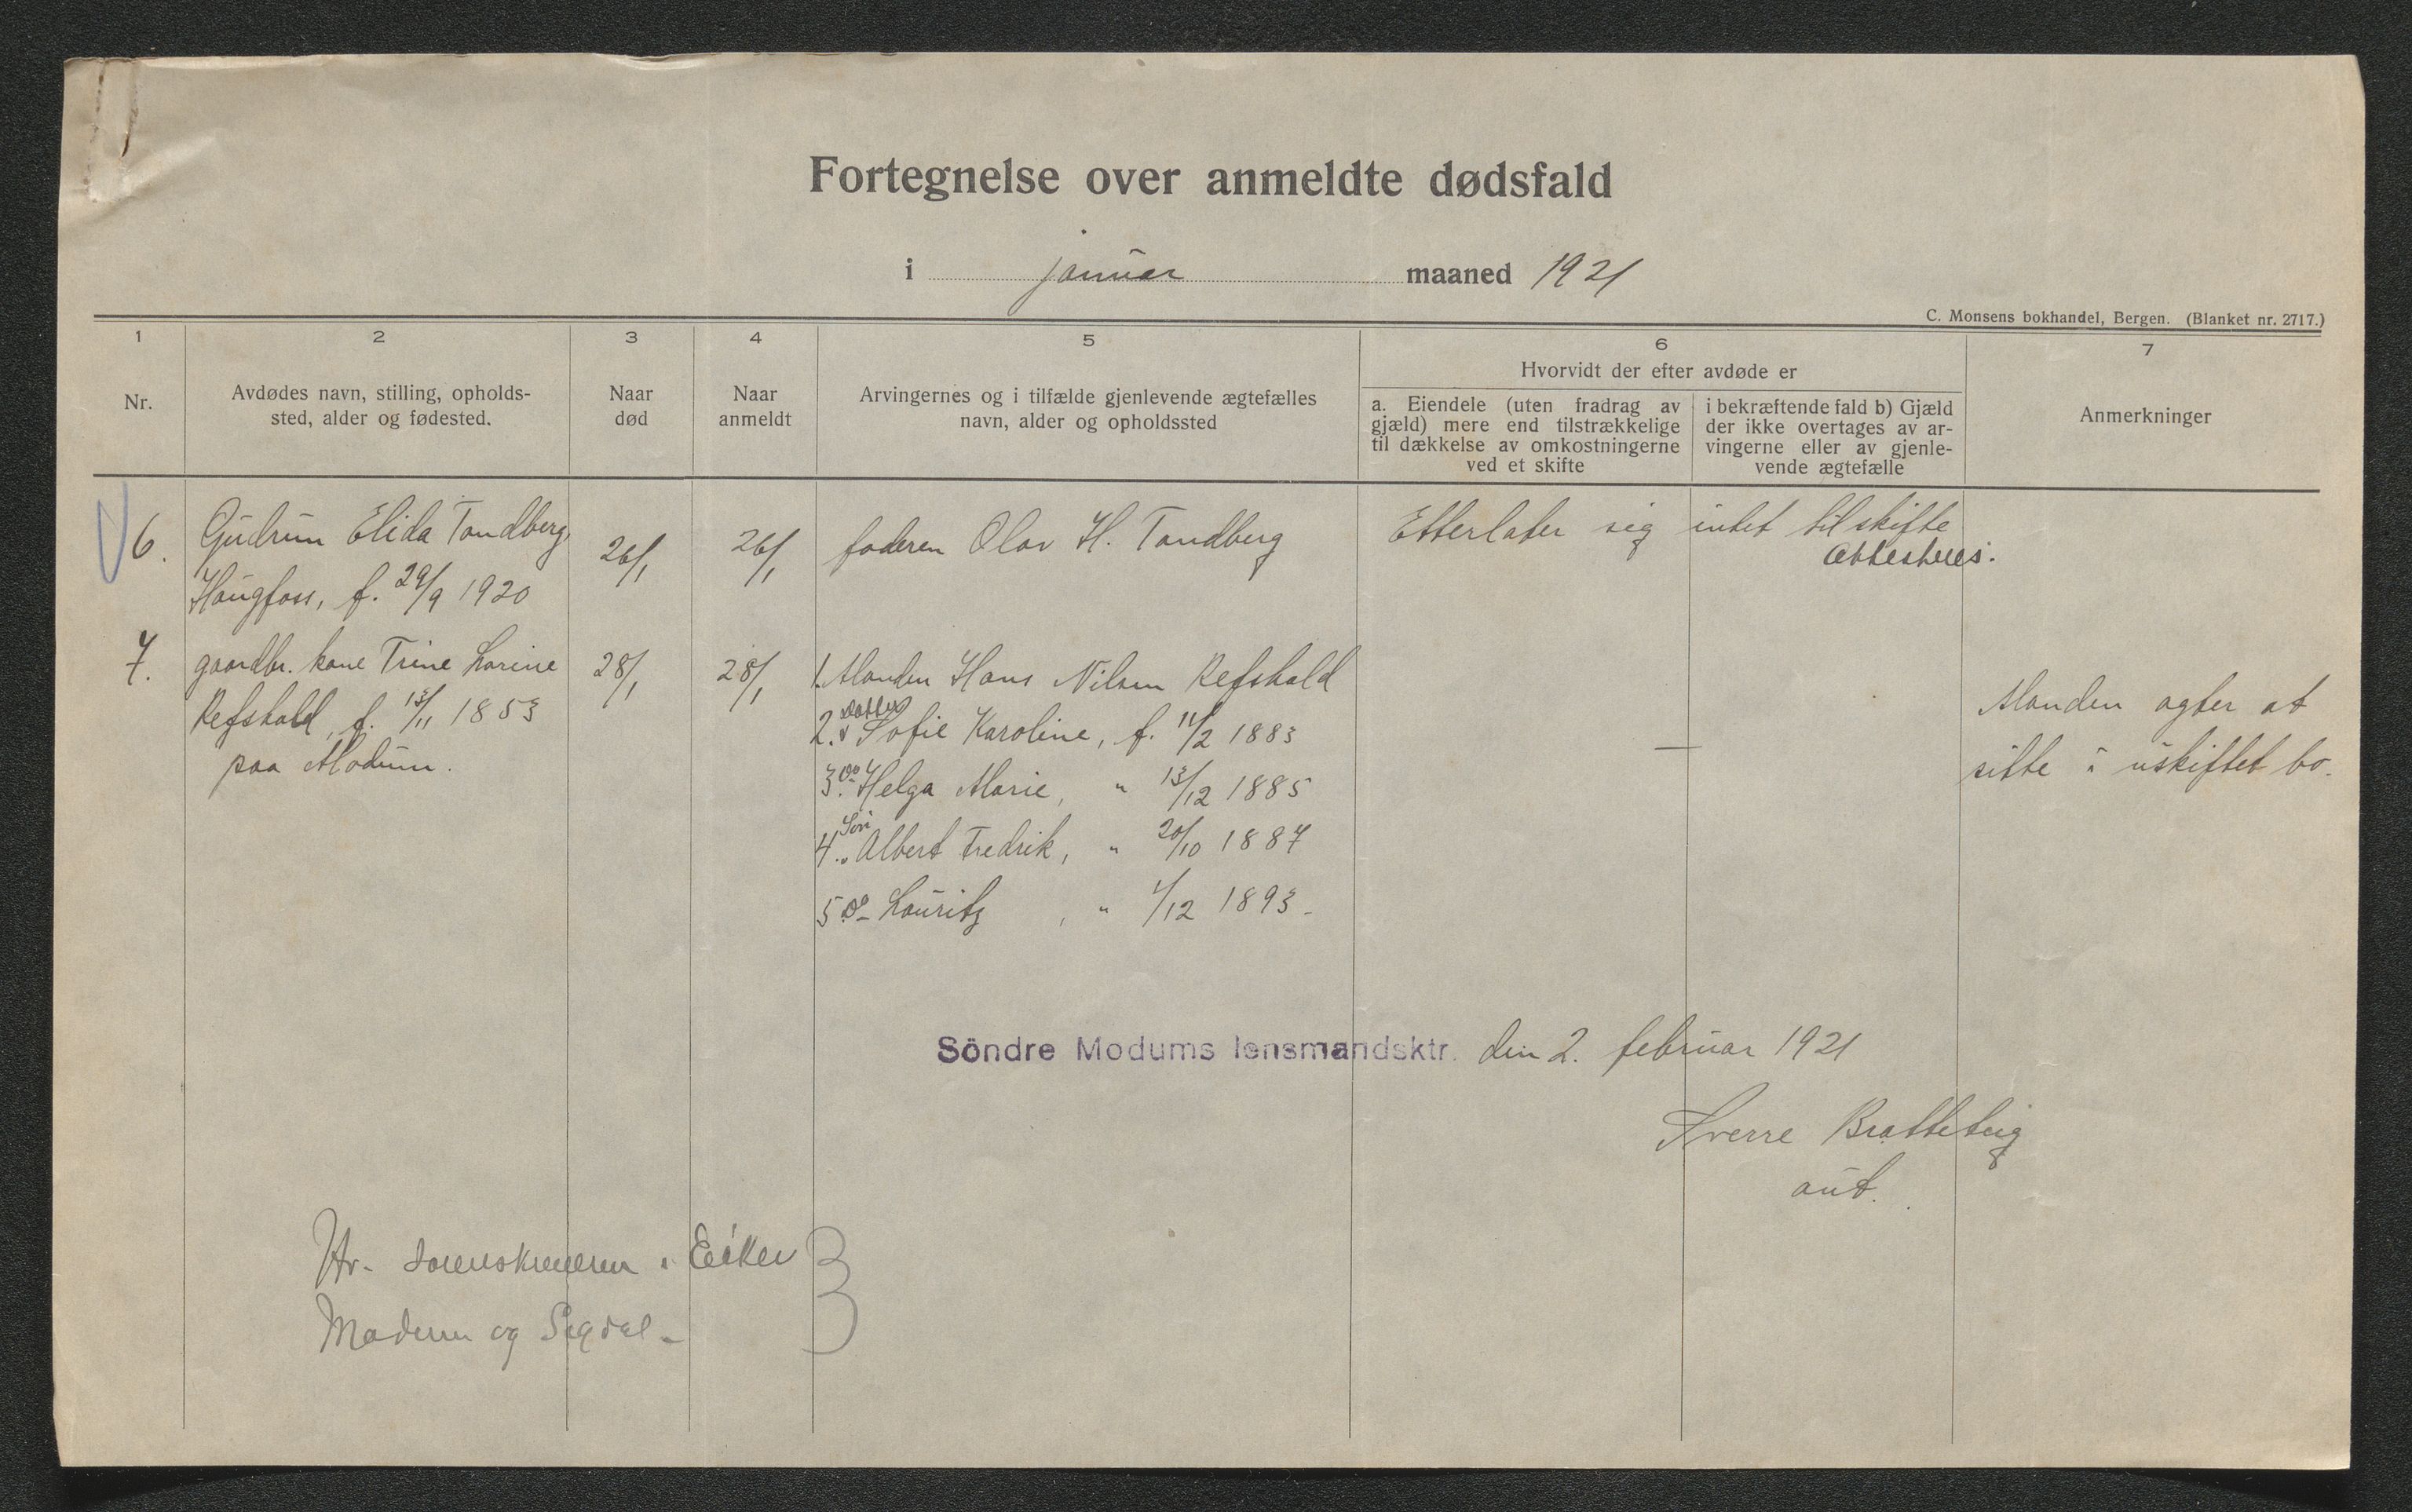 Fortegnelse over anmeldte dødsfald
i januar maaned 1921
C. Monsens bokhandel, Bergen. (Blanket nr. 2717.)
1
Nr.
2
Avdødes navn, stilling, opholds-
sted, alder og fødested.
3
Naar
død
4
Naar
anmeldt
5
Arvingernes og i tilfælde gjenlevende ægtefælles
navn, alder og opholdssted
6
Hvorvidt der efter avdøde er
a. Eiendele (uten fradrag av
gjæld) mere end tilstrækkelige
til dækkelse av omkostningerne
ved et skifte
i bekræftende fald b) Gjæld
der ikke overtages av ar-
vingerne eller av gjenle-
vende ægtefælle
7
Anmerkninger
6.
Gudrun Elida Tandberg,
Haugfoss, f. 29/9 1920
26/1
26/1
faderen Olav H. Tandberg
Etterlater sig intet til skifte
Attesteres.
7.
gaardbr. kone Trine Larine
Refshald, f. 13/11 1853
paa Modum.
28/1
28/1
1. Manden Hans Nilsen Refshald
2. datter Sofie Karoline, f. 11/2 1883
3. do Helga Marie, " 13/12 1885
4. Søn Albert Fredrik, " 20/10 1887
5 do- Lauritz , " 4/12 1893-
—
Manden agter at
sitte i uskiftet bo.
Söndre Modums lensmandsktr. den 2. februar 1921
Sverre Bratteteig
aut.
Hr. sorenskriveren i Eiker
Modum og Sigdal-